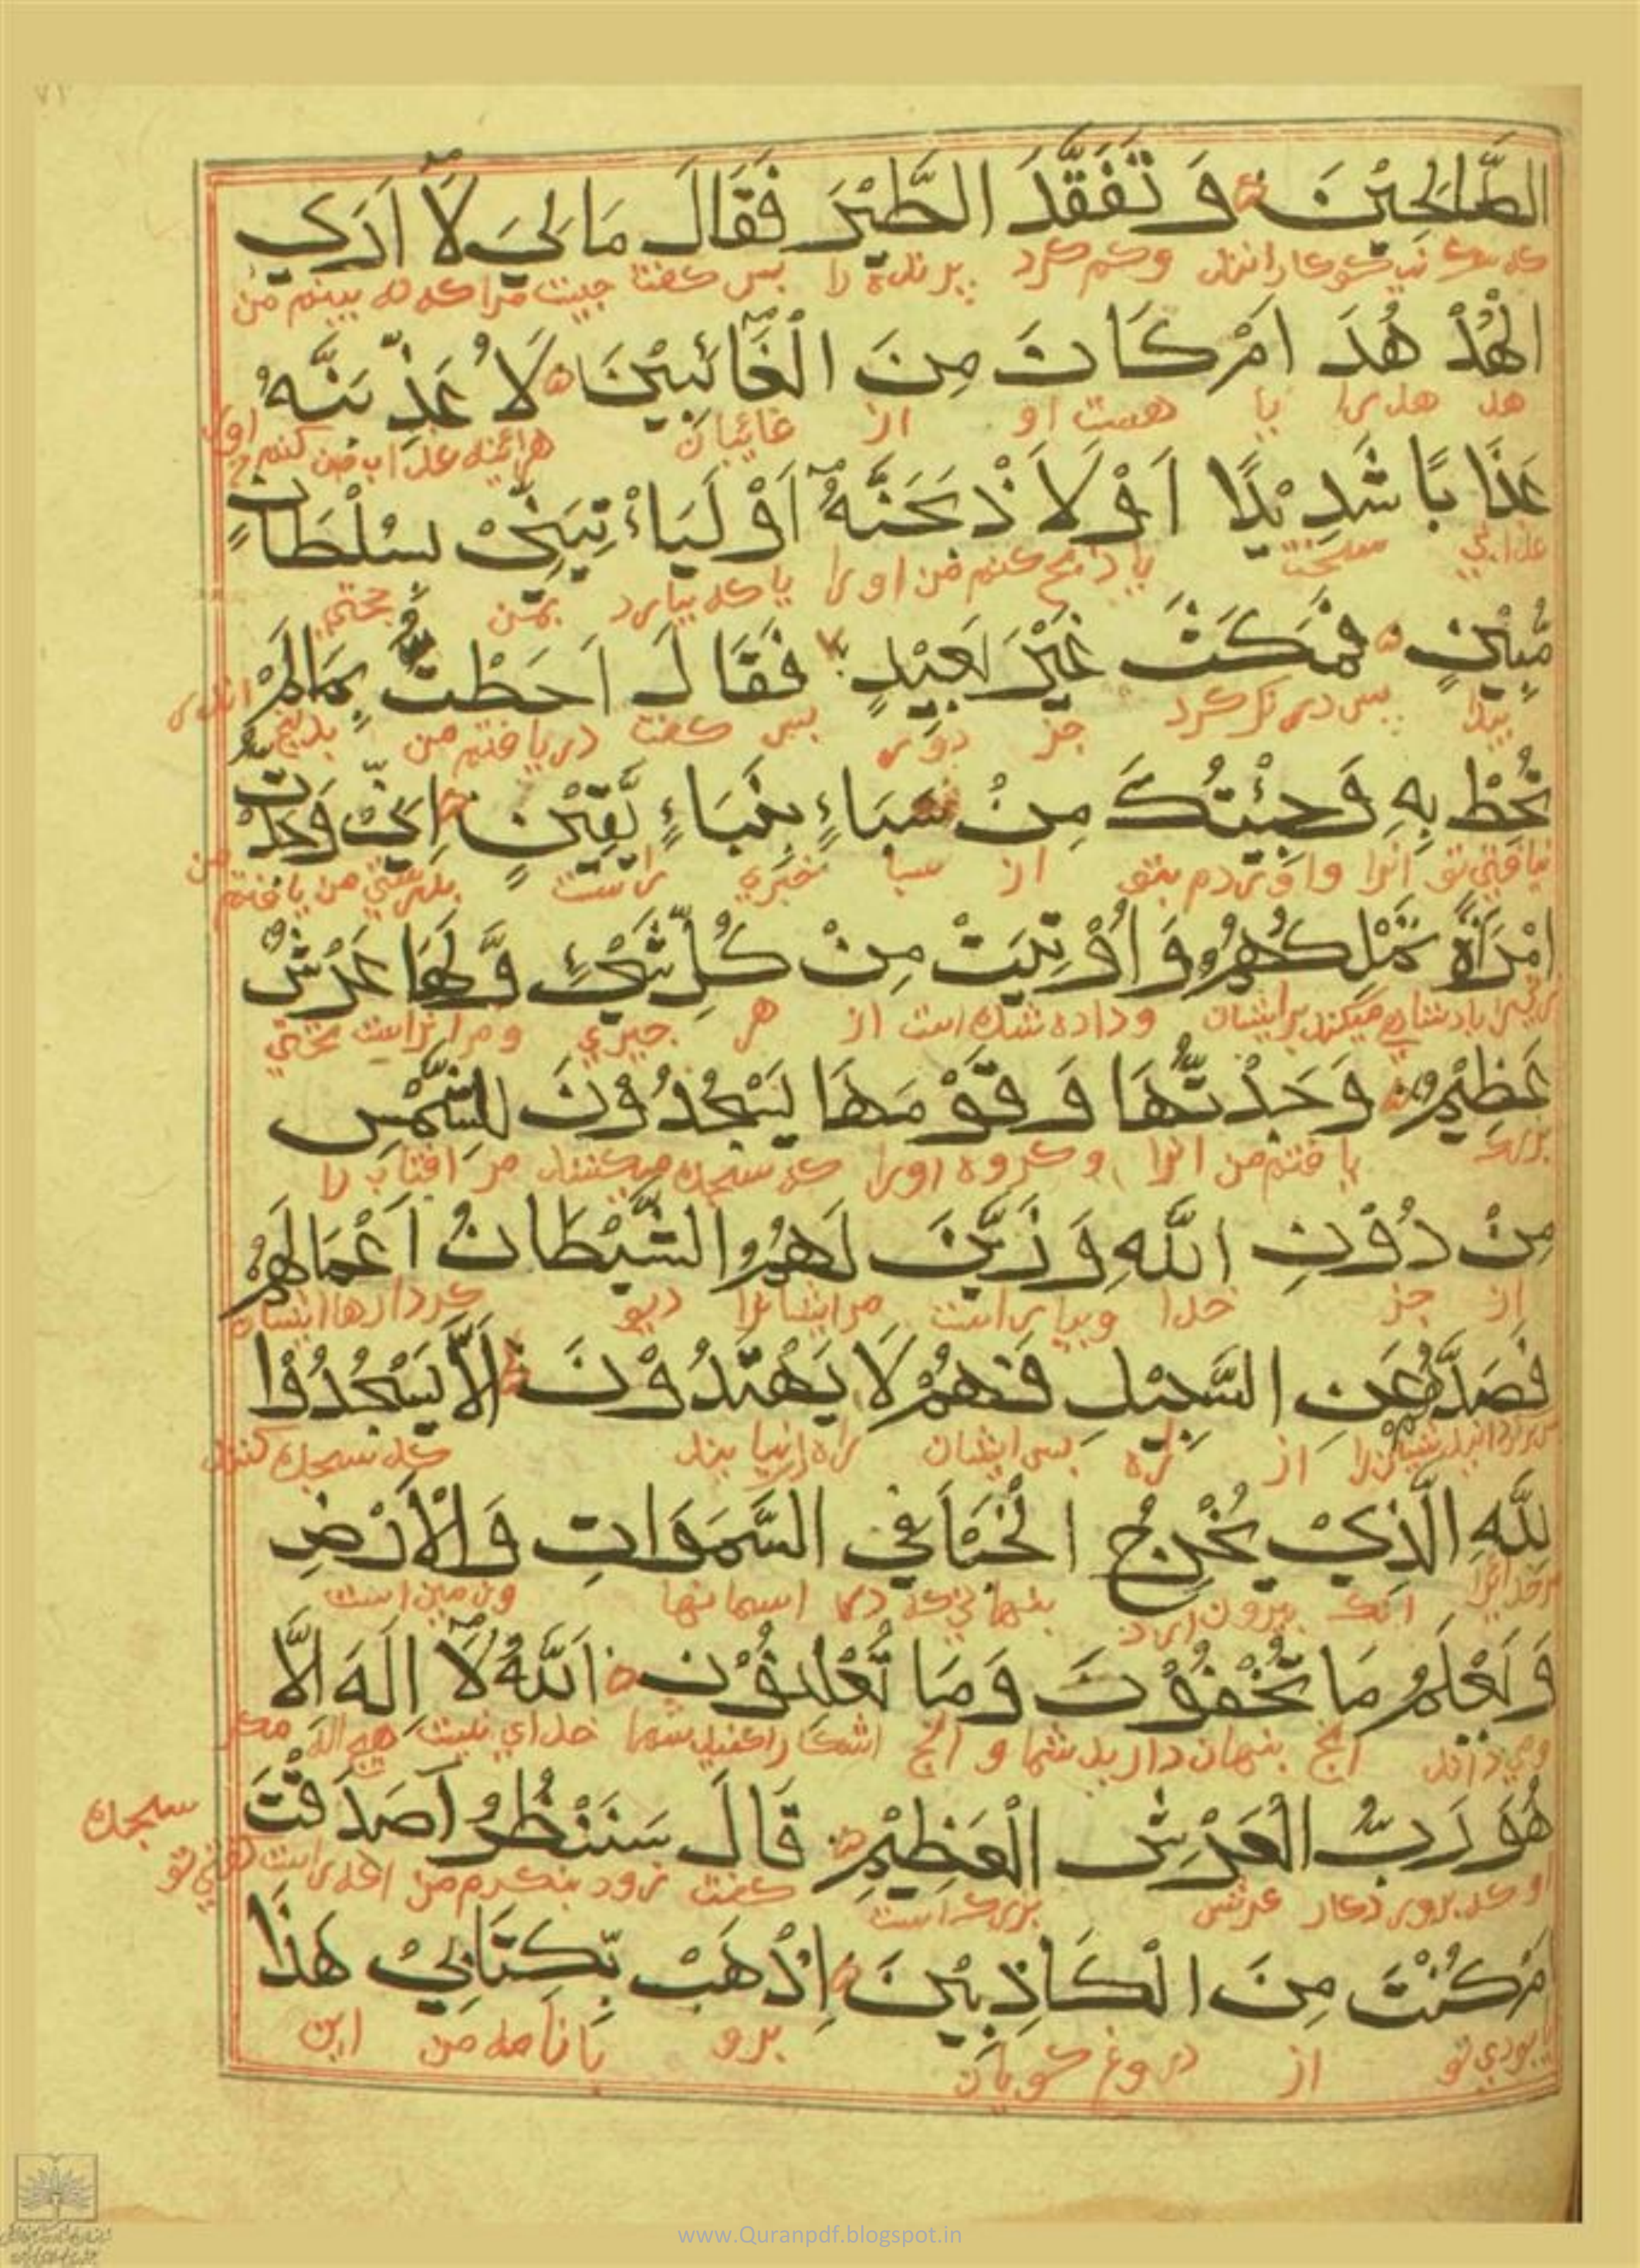 ٧٢
الصَّالِحِيْنَ وَ تَفَقَّدَ الطَّيْرَ فَقَالَ مَالِيَ لَآ اَرَي
نيكوكارانند وكم كرد پرنده را پس كفت چيست مرا كه نه بينم من
الْهُدْ هُدَ اَمْ كَانَ مِنَ الْغَآئِبِيْنَ لَاُ عَذِّ بَنَّهُ
هد هد را يا هست او از غائبان هرائنه عذاب من كنم اورا
عَذَا بًا شَدِيْدًا اَوْ لَا اَذْ بَحَنَّهُ اَوْ لَيَاْ تِيَنِّيْ بِسُلْطَانٍ
عذابي سخت يا ذبح كنم من اورا يا كه بيارد بمن حجتي
مُّبِيْنٍ فَمَكَثَ غَيْرَ بَعِيْدٍ فَقَالَ اَحَطْتُّ بِمَالَمْ
پيدا پس درنك كرد جز دوري پس كفت دريافتم من
تُحِطْ بِهِ وَجِئْتُكَ مِنْ سَبَاءٍ بِنَبَاءٍ يَّقِيْنٍ اِنِّيْ وَجَدْتُّ
نيافتي تو انرا واوردم بتو از سبا خبري راست بدرستي من يافتم
امْرَاَةً تَمْلِكُهُمْ وَ اُوْ تِيَتْ مِنْ كُلِّ شَيْءٍ وَّ لَهَا عَرْشٌ
زني را پادشاهي ميكند برايشان وداده شده است از هر چيزي ومر انراست تختي
عَظِيْمٌ وَجَدْتُّهَا وَ قَوْ مَهَا يَسْجُدُوْنَ لِلشَّمْسِ
بزرك يافتم من انرا وكروه اورا كه سجده ميكنند مر افتاب را
مِنْ دُوْنِ اللّٰهِ وَ زَيَّنَ لَهُمُ الشَّيْطَانُ اَعْمَالَهُمْ
از جز خدا وبياراست مرايشانرا ديو كردارها ايشان
فَصَدَّهُمْ عَنِ السَّبِيْلِ فَهُمْ لَا يَهْتَدُوْنَ اَلَّا يَسْجُدُوْا
از راه پس ايشان راه نيابند كه سجده كنند
لِلّٰهِ الَّذِيْ يُخْرِجُ الْخَبْأَ فِي السَّمَوَاتِ وَالْاَرْضِ
مرخدايرا انك بيرون ارد پنهاني كه در اسمانها وزمين است
وَ يَعْلَمُ مَا تُخْفُوْنَ وَمَا تُعْلِنُوْنَ اَللّٰهُ لَآ اِلَهَ اِلَّا
وميداند انچ پنهان داريد شما و انچ اشكارا كنيد شما خداي نيست هيچ اله مكر
هُوَ رَبُّ الْعَرْشِ الْعَظِيْمِ قَالَ سَنَنْظُرُ اَصَدَقْتَ
سجده
او كه پروردكار عرش بزرك است كفت زود بنكرم من
اَمْ كُنْتَ مِنَ الْكَاذِبِيْنَ اِذْهَبْ بِّكِتَابِيْ هٰذَا
يا بودي تو از دروغ كويان برو با نامه من اين
www.Quranpdf.blogspot.in